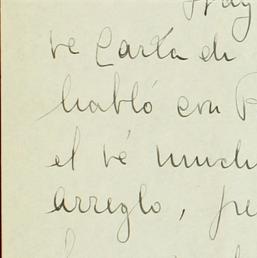 ve Carta de
habló con
el vé much
arreglo, pe